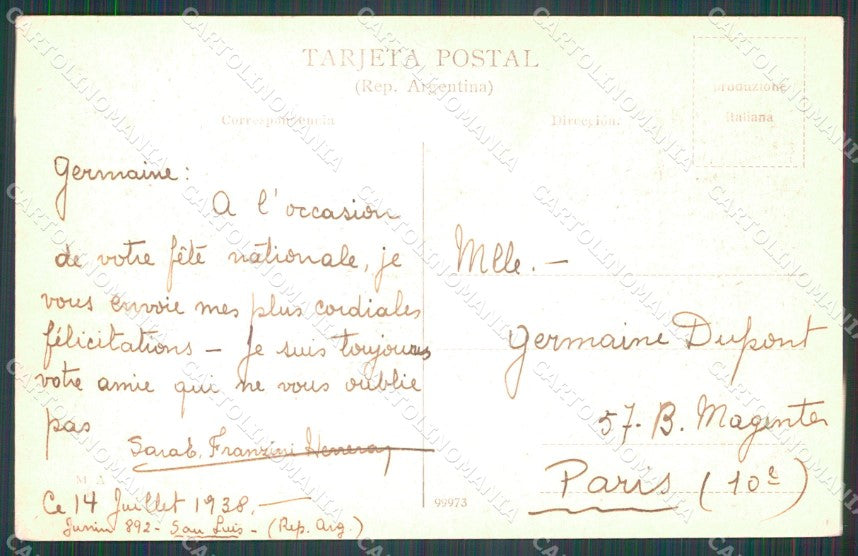 TARJETA POSTAL
(Rep. Argentina)
Correspondencia
Dirección.
produzione
italiana
Germaine:
A l'occasion
de votre fête nationale, je
vous envoie mes plus cordiales
félicitations – Je suis toujours
votre amie qui ne vous oublie
pas
Sarah Franzini Herrera
Ce 14 Juillet 1938.—
Junin 892 - San Luis - (Rep. Arg.)
Mlle. —
Germaine Dupont
57. B. Magenta
Paris (10e)
M A
99973
CARTOLINOMANIA